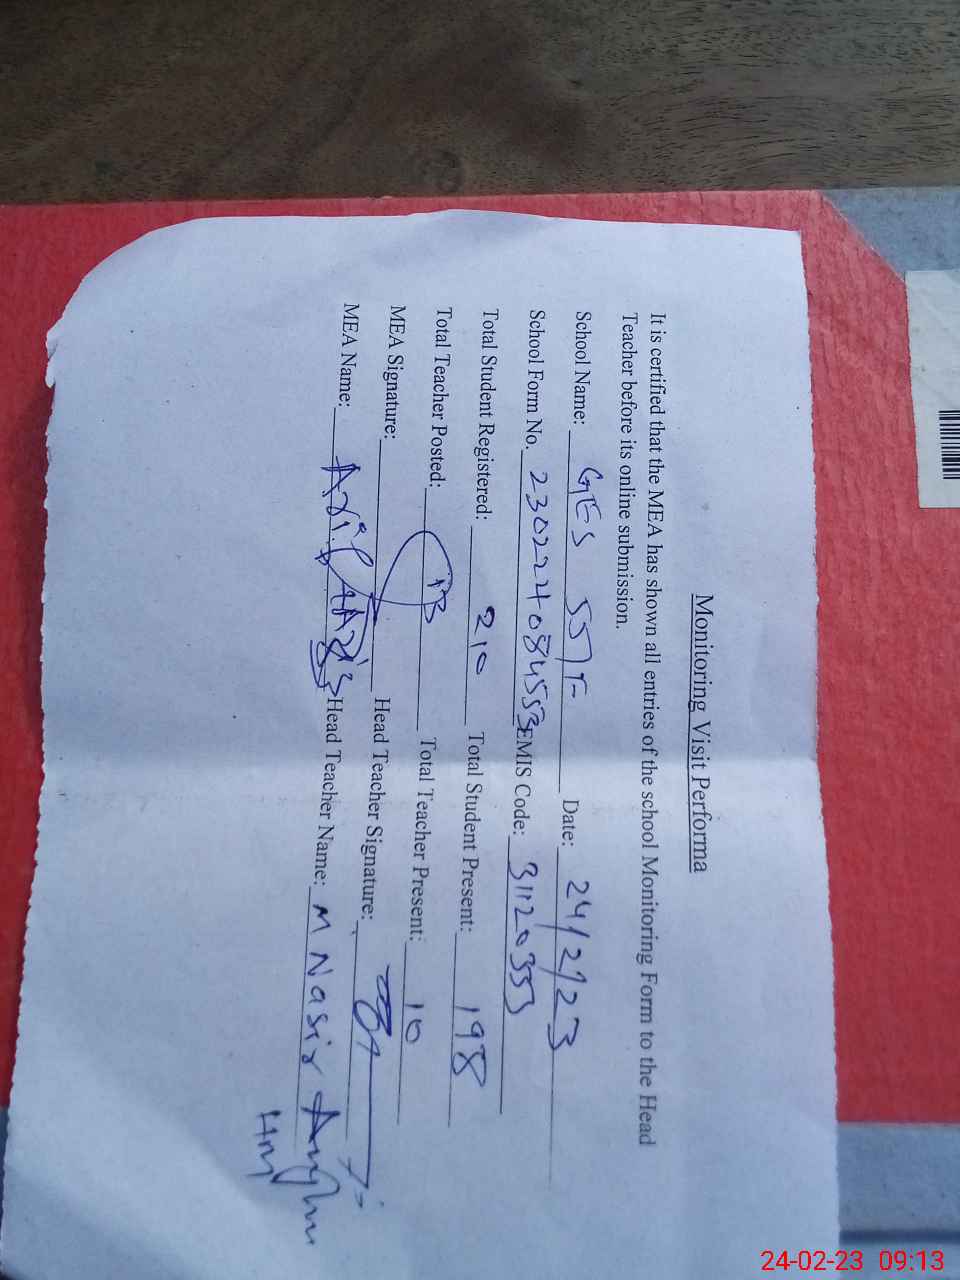 Monitoring Visit Performa
It is certified that the MEA has shown all entries of the school Monitoring Form to the Head
Teacher before its online submission.
School Name: GES 55/F Date: 24/2/23
School Form No. 230222408455 EMIS Code: 31120353
Total Student Registered: 210 Total Student Present: 198
Total Teacher Posted: Total Teacher Present: 10
MEA Signature: Head Teacher Signature:
MEA Name: Head Teacher Name: M Nasir
HM
24-02-23 09:13